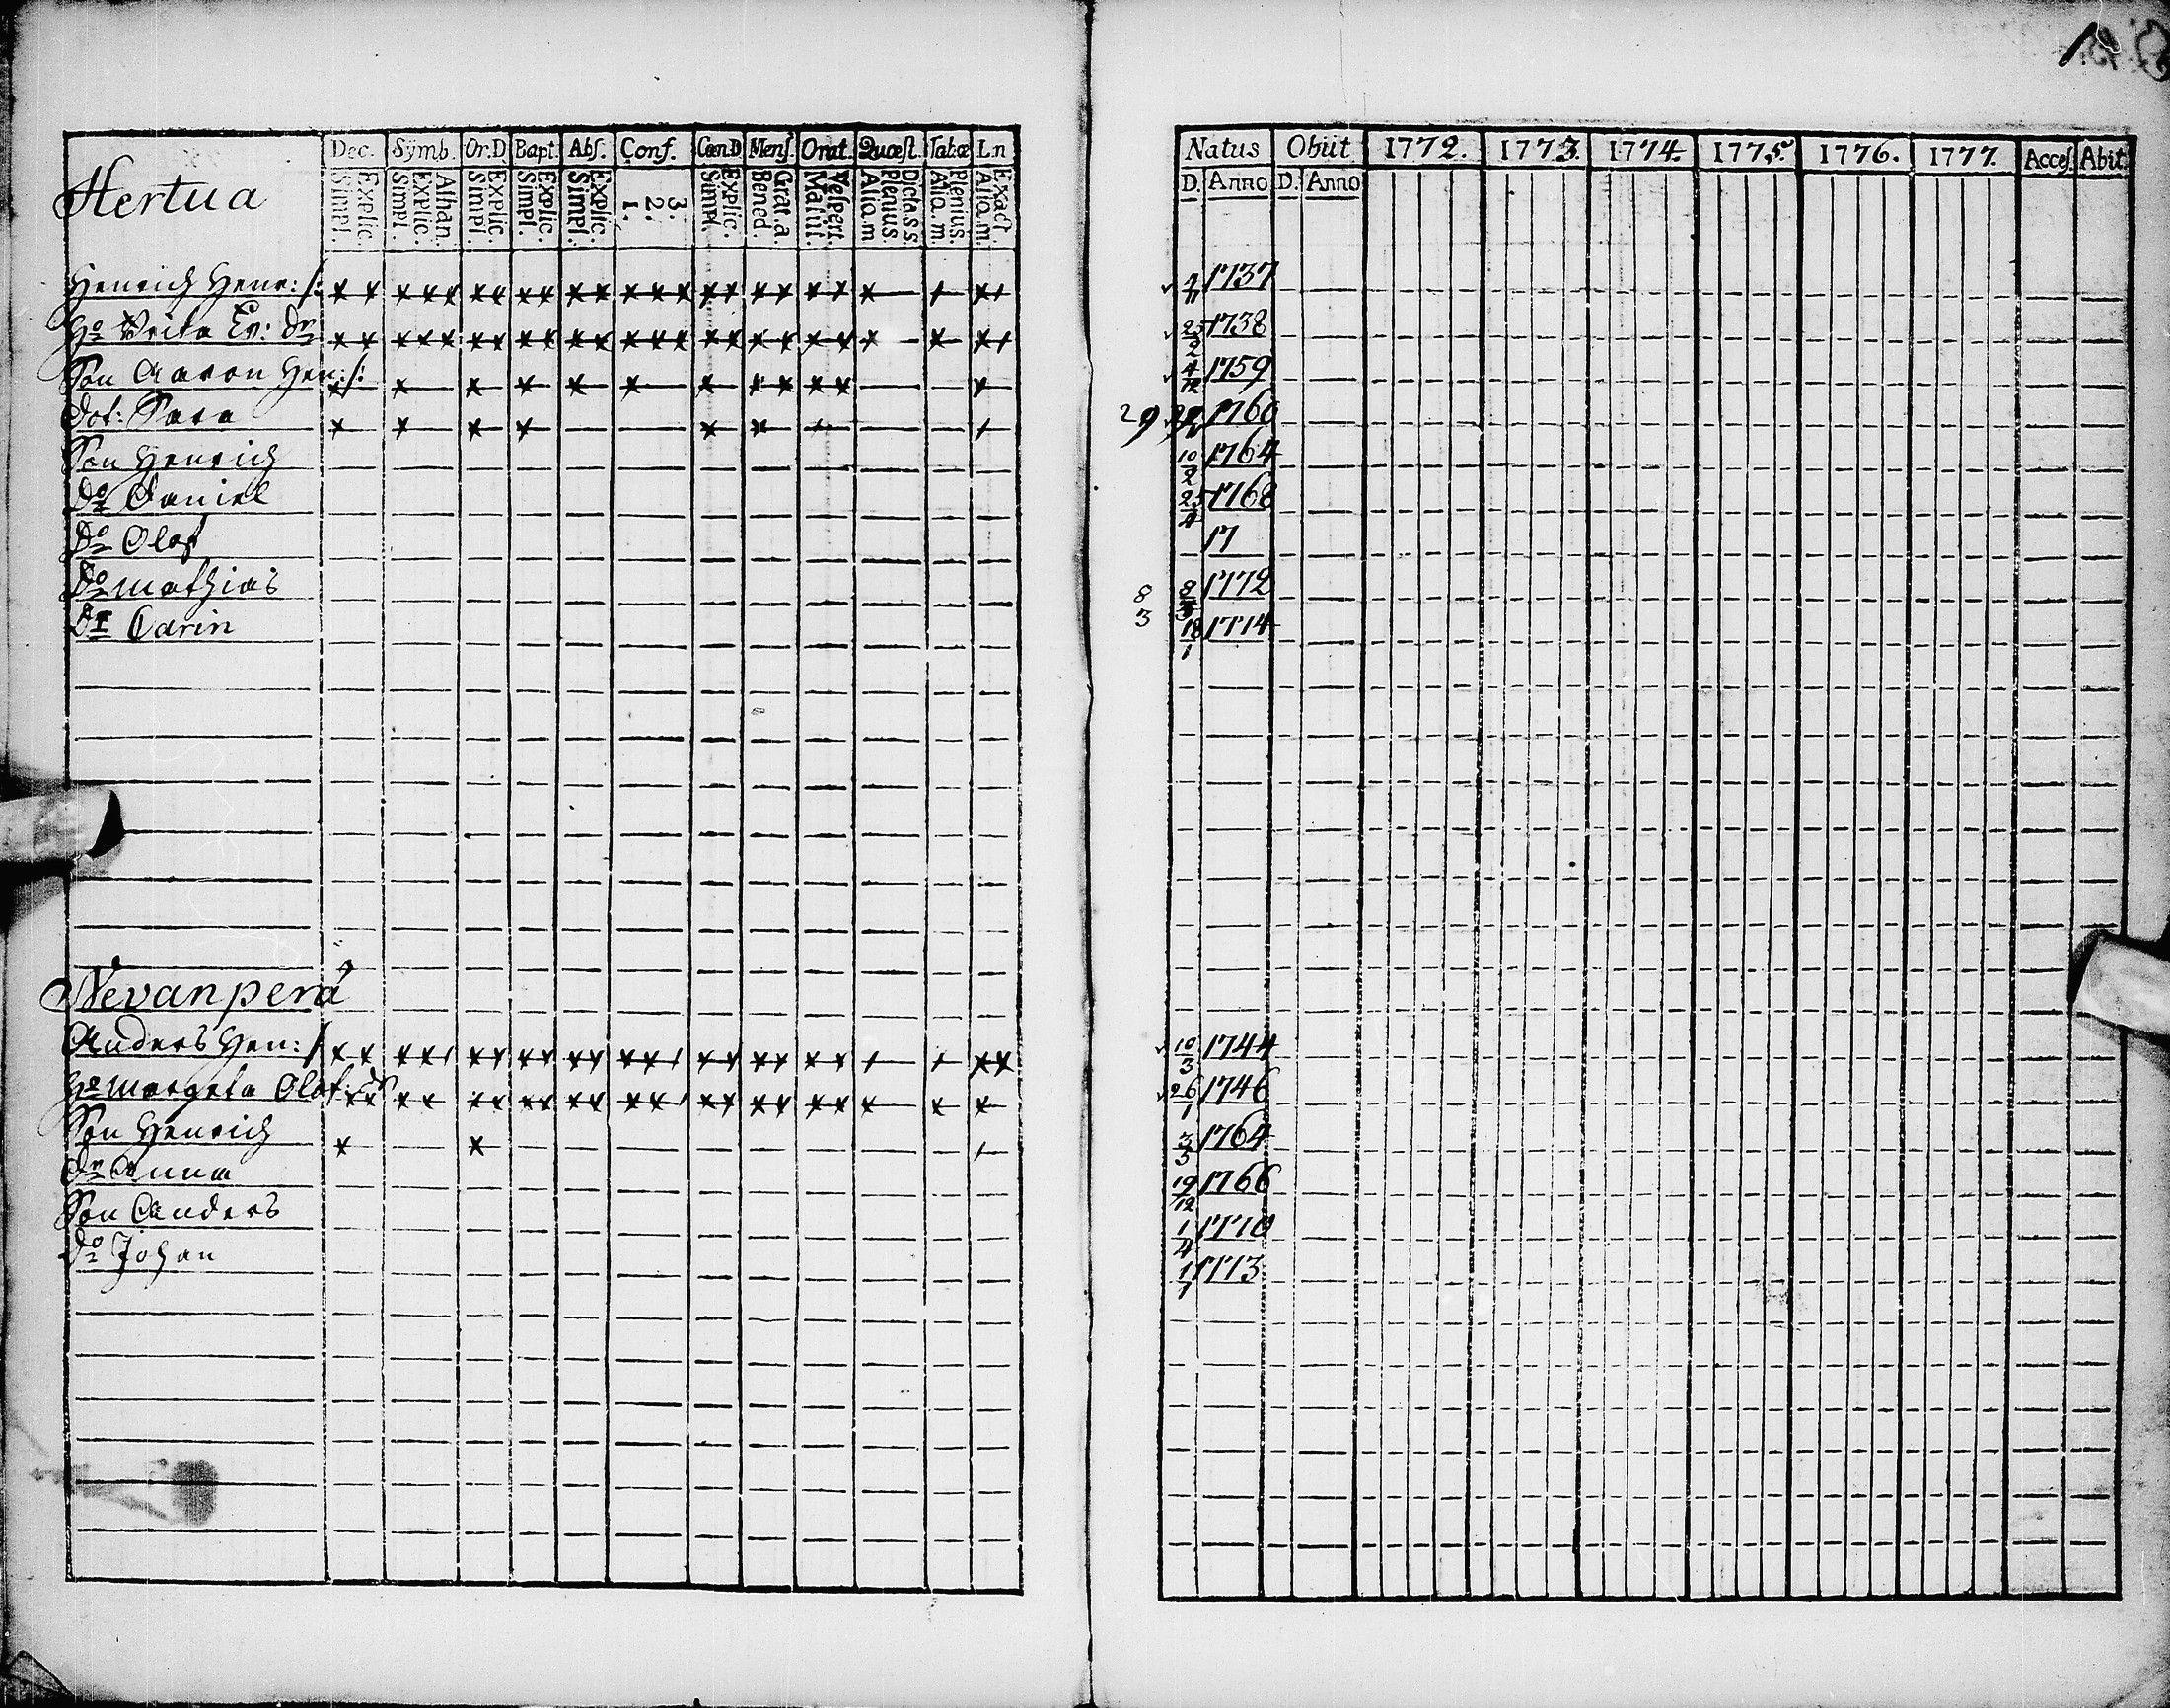 Hertua
Dec. Symb. Or.D Bapt. Abs. Conf. Cœn.D Mens. Orat. Quæst. Tab.œ L.n
Explic. Simpl.
Athan. Explic. Simpl.
Explic. Simpl.
Explic. Simpl.
Explic. Simpl.
3. 2. 1.
Explic. Simpl.
Grat. a. Bened.
Vespert. Matut.
Dicta.s.s. Plenius. Alia.m
Plenius. Alia.m.
Exact. Alia.m.
Henrich Henr: /:
Ho Brita Er: dr
Son Aaron Hen: /:
dot: Sara
Son Henrich
Do Daniel
Do Olof
Do Mathias
Dr Carin
Nevanperä
Anders Hen: /
Ho Margeta Olof: dr
Son Henrich
Dr Anna
Son Anders
Do Johan
Natus Obiit 1772. 1773. 1774. 1775. 1776. 1777. Acces. Abit.
D. Anno D. Anno
1737
25/2 1738
4/12 1759
29 1760
10/2 1764
25/4 1768
17
8 3 8/3 1772
18/1 1774
10/3 1744
26/1 1746
3/3 1764
19/12 1766
1/4 1770
1773